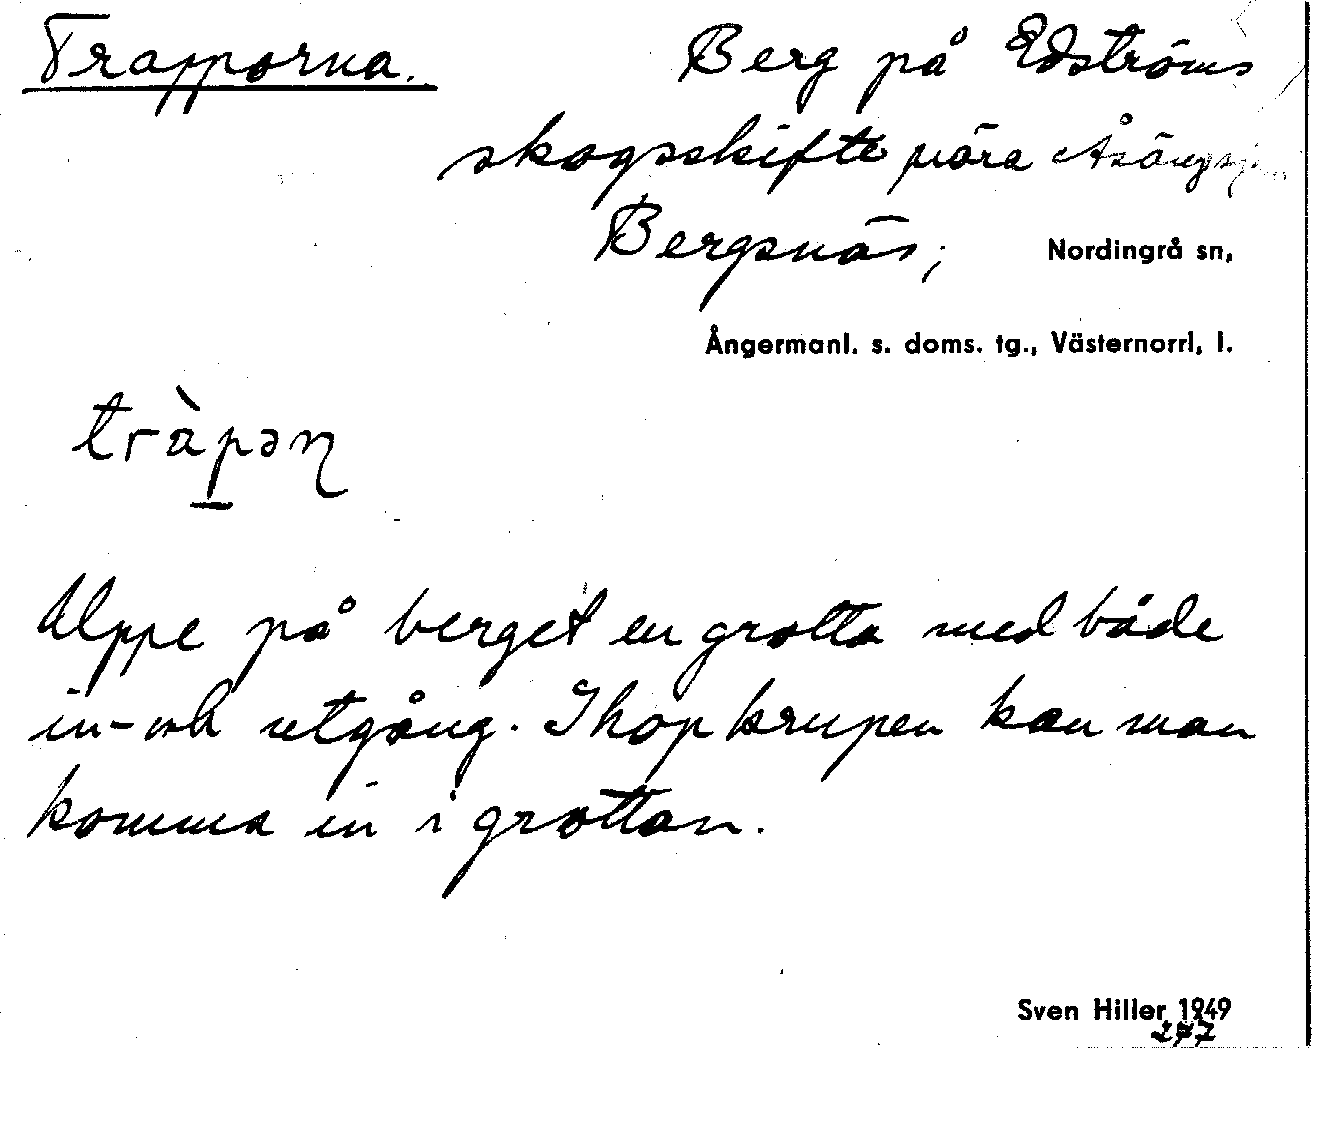 Trapporna. Berg på Edströms
skogsskifte nära Åsängsj
Bergsnäs; Nordingrå sn,
Ångermanl. s. doms. tg., Västernorrl, l.
tràpəɳ
Uppe på berget en grotta med både
in- och utgång. Ihopkrupen kan man
komma in i grottan.
Sven Hiller 1949
277